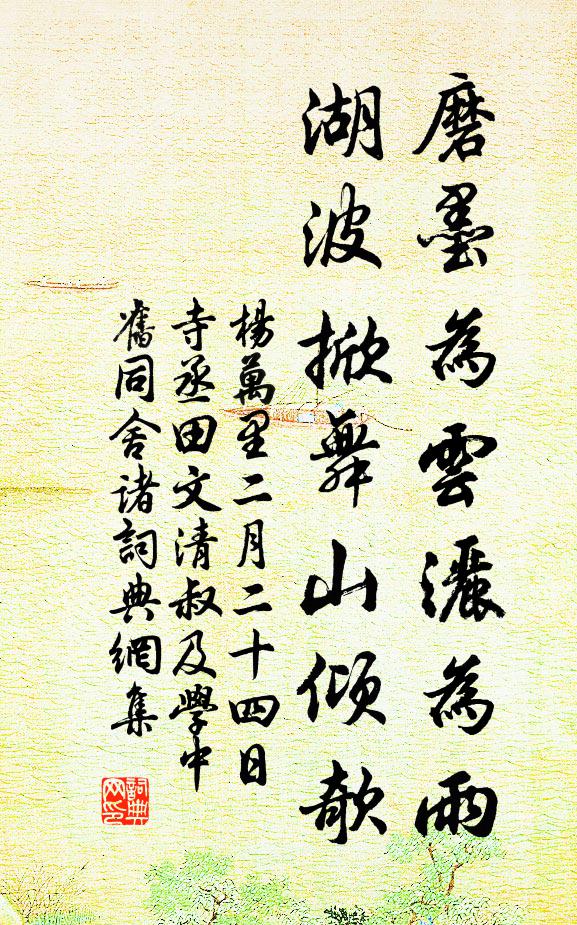 磨墨為雲灑為雨
湖波掀舞山傾欹
楊萬里二月二十四日
寺丞田文清叔及學中
舊同舍諸詞典網集
詞典
网印